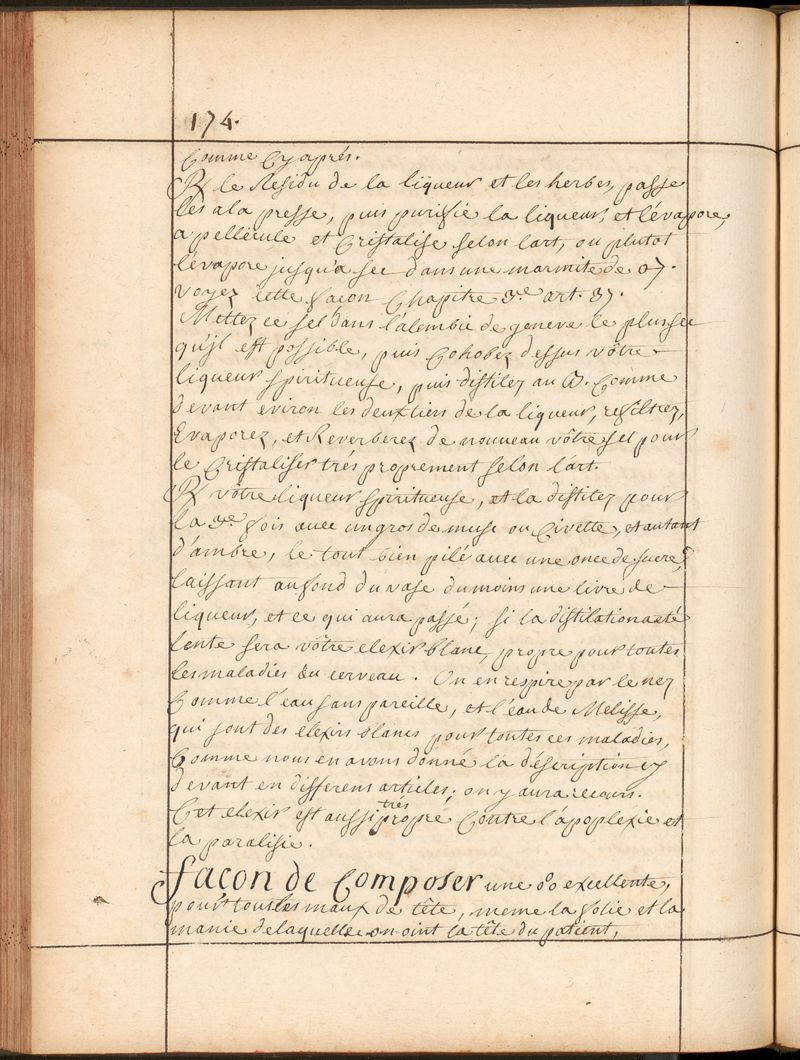 174.
Comme Cy aprés.
℞ le Residu de la liqueur et les herbes, passe
les a la presse, puis purifié la liqueur, et l'évapore,
a pellicule et Cristalise selon l'art, ou plutot
l'évapore jusqu'a sec dans une marmite de
voyez cette facon Chapitre 3.e art. 37.
Mettez ce sel dans l'alembic de geneve le plus sec
qu'jl est possible, puis Cohobez dessus vôtre
liqueur spiritueuse, puis distilez au B. Comme
devant eviron les deux tiers de la liqueur, refiltrez,
Evaporez, et Reverberez de nouveau vôtre sel pour
le Cristaliser trés proprement selon l'art.
℞ vôtre liqueur spiritueuse, et la distilez pour
la 3.e fois avec un gros de musc ou Civette, et autant
d'ambre, le tout bien pilé avec une once de sucre,
laissant au fond du vase du moins une livre de
liqueur, et ce qui aura passé; si la distilation a été
lente sera vôtre elexir blanc, propre pour toutes
les maladies du cerveau. On en respire par le nez
Comme l'eau sans pareille, et l'eau de Melisse,
qui sont des elexirs blancs pour toutes ces maladies,
Comme nous en avons donné la déscription cy
devant en differens articles; on y aura recours.
Cet elexir est aussi trés propre Contre l'apoplexie et
la paralisie.
façon de Composer une excellente,
pour tous les maux de tête, meme la folie et la
manie de laquelle on oint la tête du patient,